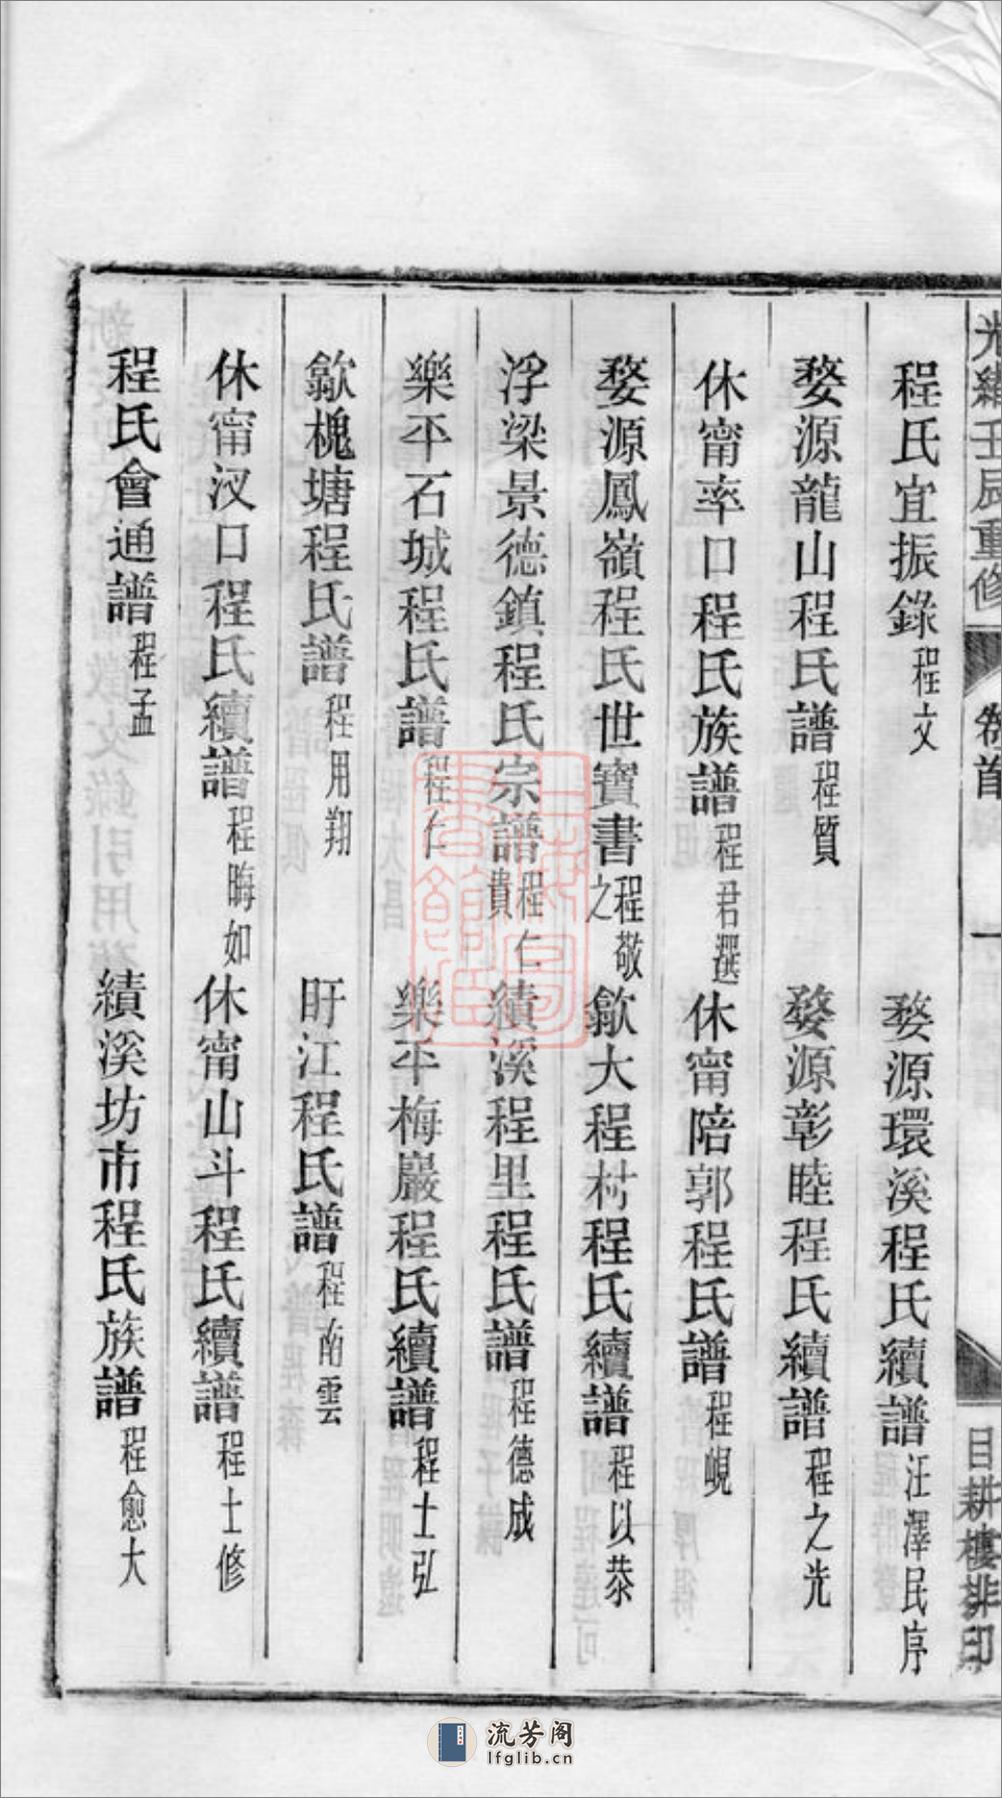 光緒壬辰重修 卷首 一 目耕樓排印
程氏宜振錄程文 婺源環溪程氏續譜汪澤民序
婺源龍山程氏譜程質 婺源彰睦程氏續譜程之光
休甯率口程氏族譜程君選 休甯陪郭程氏譜程峴
婺源鳳嶺程氏世寶書程敬之 歙大程村程氏續譜程以恭
浮梁景德鎮程氏宗譜程仁貴 績溪程里程氏譜程德成
樂平石城程氏譜程仁 樂平梅巖程氏續譜程士弘
歙槐塘程氏譜程用翔 盱江程氏譜程南雲
休甯汊口程氏續譜程晦如 休甯山斗程氏續譜程士修
程氏會通譜程孟 績溪坊市程氏族譜程愈大
流芳阁
lfglib.cn